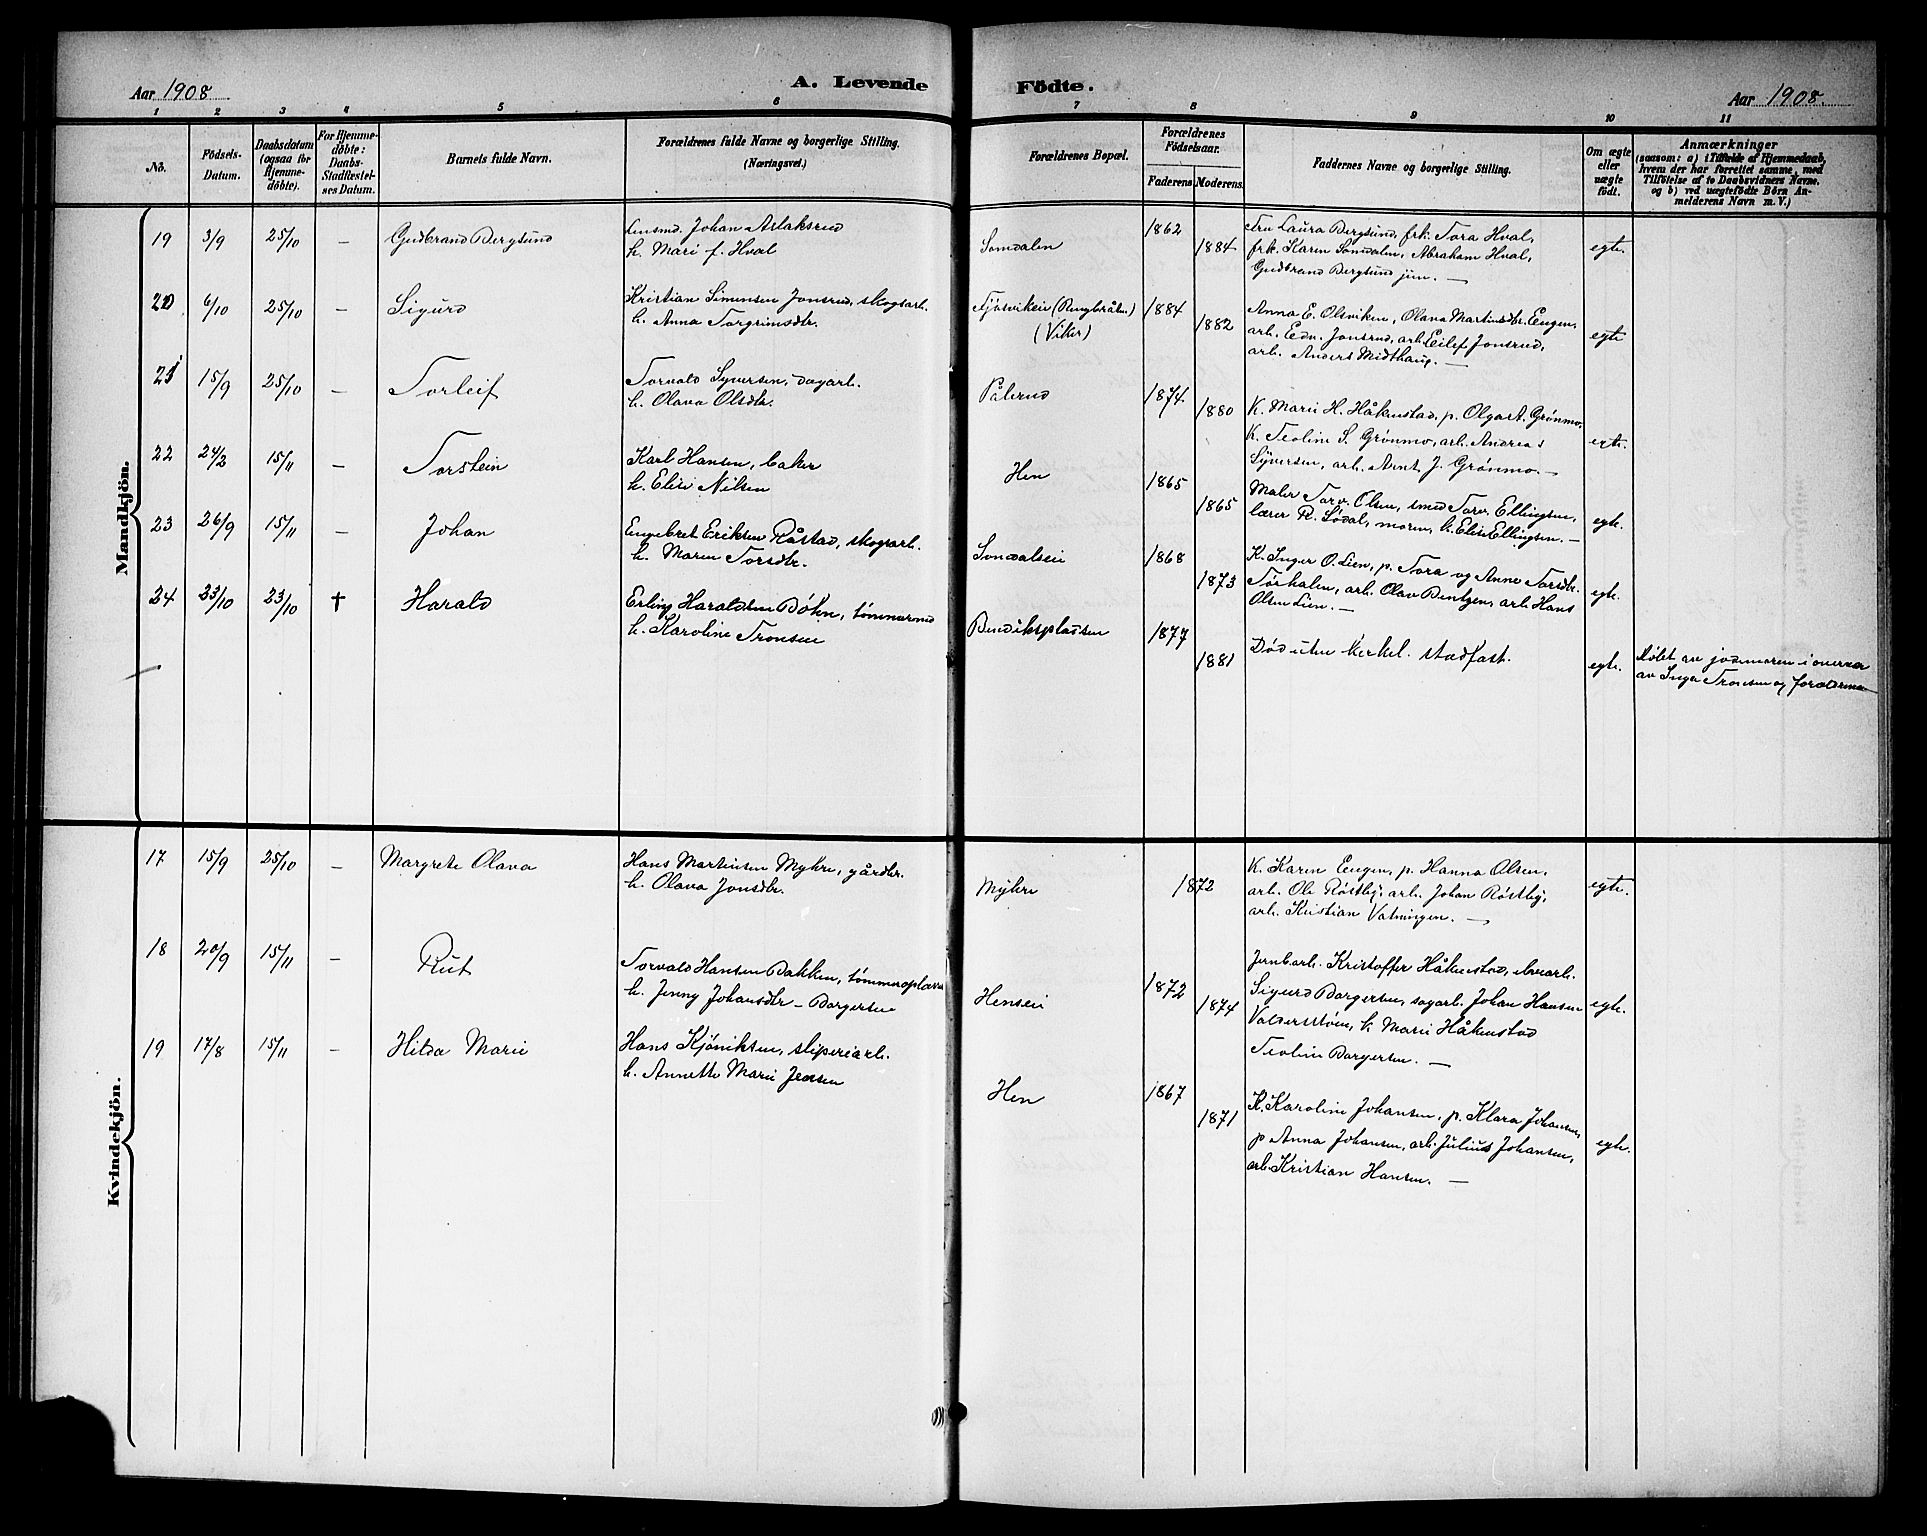 Aar 1908
A. Levende Födte.
Aar 1908.
1 2 3 4 5 6 7 8 9 10 11
No.
Födsels-Datum.
Daabsdatum (ogsaa for Hjemme-döbte).
For Hjemme-döbte: Daabs-Stadfæstel-ses Datum.
Barnets fulde Navn.
Forældrenes fulde Navne og borgerlige Stilling.
(Næringsvei.)
Forældrenes Bopæl.
Forældrenes Födselsaar.
Faderens. Moderens.
Faddernes Navne og borgerlige Stilling.
Om ægte eller uægte födt.
Anmærkninger
(saasom: a) i Tilfælde af Hjemmedaab,
hvem der har forrettet samme, med
Tilföielse af to Daabsvidners Navne,
og b) ved uægtefödte Börn An-
melderens Navn m. V.)
Mandkjön.
19 3/9 25/10 — Gudbrand Bergsund
Lensmd. Johan Aslaksrud
h. Mari f. Hval
Somdalen
1862
1884
Fru Laura Bergsund, frk. Tora Hval,
frk. Karen Somdalen, Abraham Hval,
Gudbrand Bergsund jun. —
egte.
20 6/10 25/10 — Sigurd
Kristian Simensen Jonsrud, skogsarb.
h. Anna Torgrimsdtr.
(Viker)
1884
1882
Anna E. Olsviken, Olava Martinsdtr. Engen,
arb. Edv. Jonsrud, arb. Eilef Jonsrud,
arb. Anders Midthaug. —
egte
21 15/9 25/10 — Torleif
Torvald Syversen, dagarb.
h. Olava Olsdtr.
Pålerud
1874
1880
K. Marie H. Håkenstad, p. Olga A. Grønmo,
K. Teoline S. Grønmo, arb. Andreas
Syversen, arb. Arnt J. Grønmo. —
egte.
22 24/2 15/11 — Torstein
Karl Hansen, baker
h. Elise Nilsen
Hen
1865
1865
Maler Torv. Olsen, smed Torv. Ellingsen,
lærer R. Sødal, moren, k. Elise Ellingsen. —
egte.
23 26/9 15/11 — Johan
Engebret Eriksen Råstad, skogsarb.
h. Maren Torsdtr.
Somdalseie
1868
1873
K. Inger O. Lien, p. Tora og Anne Torsdtr.
Tørhalen, arb. Olav Bentzen, arb. Hans
Olsen Lien. —
egte.
24 23/10 23/10 † Harald
Erling Haraldsen Bøhn, tømmermd
h. Karoline Tronsen
Bendiksplassen
1877
1881
Død uten kirkel. stadfæst.
egte.
Døbt av jordmoren i overvær
av Inga Tronsen og forældrene
Kvindekjön.
17 15/9 25/10 — Margrete Olava
Hans Martinsen Myhre, gårdbr.
h. Olava Jonsdtr.
Myhre
1872
K. Karen Engen, p. Hanna Olsen,
arb. Ole Røstby, arb. Johan Røstby,
arb. Kristian Vatningen. —
egte.
18 20/9 15/11 — Rut
Torvald Hansen Bakken,
h. Jenny Johansdtr — Borgersen
Henseie
1872
1874
Jernb.arb. Kristoffer Håkenstad,
Sigurd Borgersen, sagarb. Johan Hansen
k. Marie Håkenstad
Teoline Borgersen. —
egte.
19 17/8 15/11 — Hilda Marie
Hans Kjøniksen, sliperiarb.
h. Annette Marie Jensen
Hen
1867
1871
K. Karoline Johansen, p. Klara Johansen,
p Anna Johansen, arb. Julius Johansen,
arb. Kristian Hansen. —
egte.